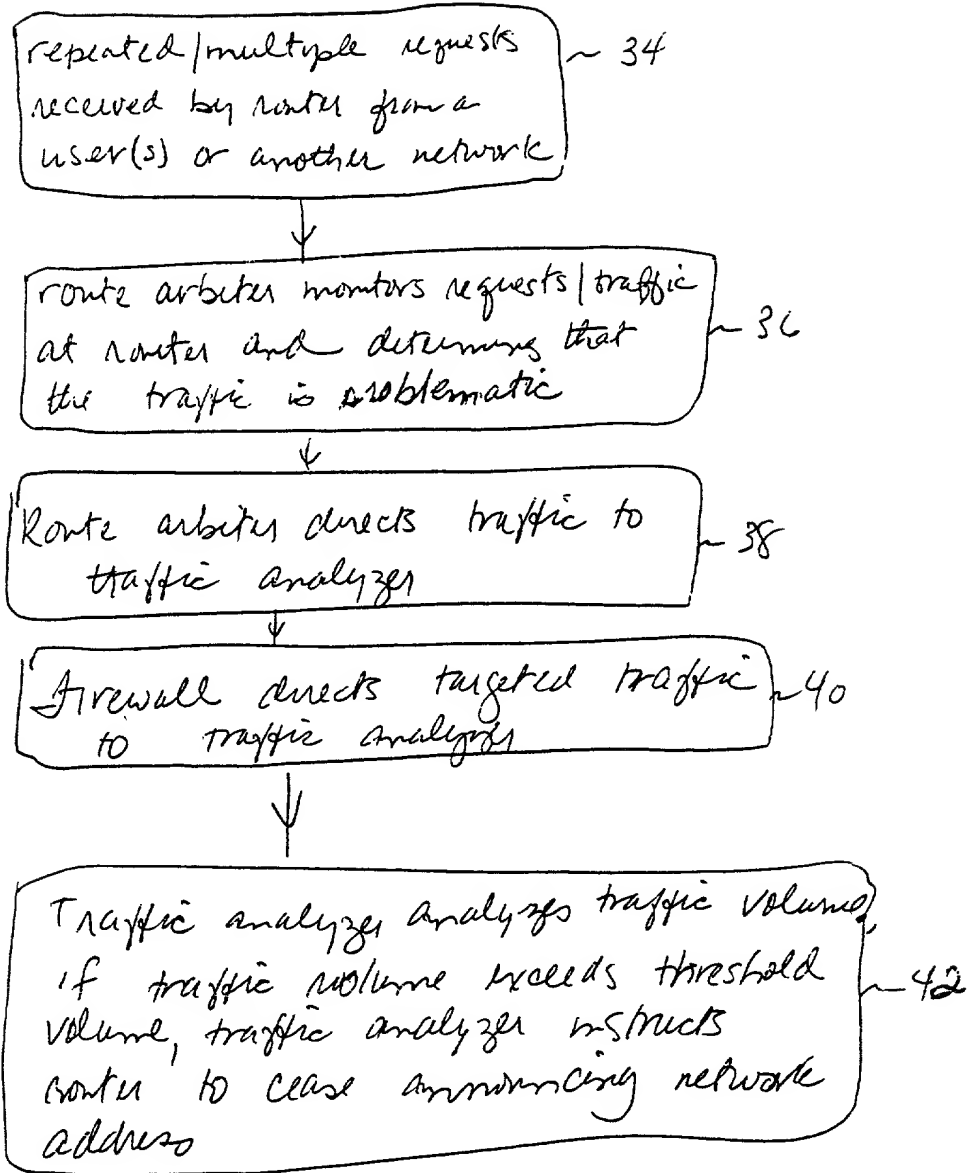 repeated/multiple requests ~ 34
received by router from a
user(s) or another network
route arbiter monitors requests/traffic
at router and determines that ~ 36
the traffic is problematic
Route arbiter directs traffic to ~ 38
traffic analyzer
Firewall directs targeted traffic ~ 40
to traffic analyzer
Traffic analyzer analyzes traffic volume,
if traffic volume exceeds threshold ~ 42
volume, traffic analyzer instructs
router to cease announcing network
address